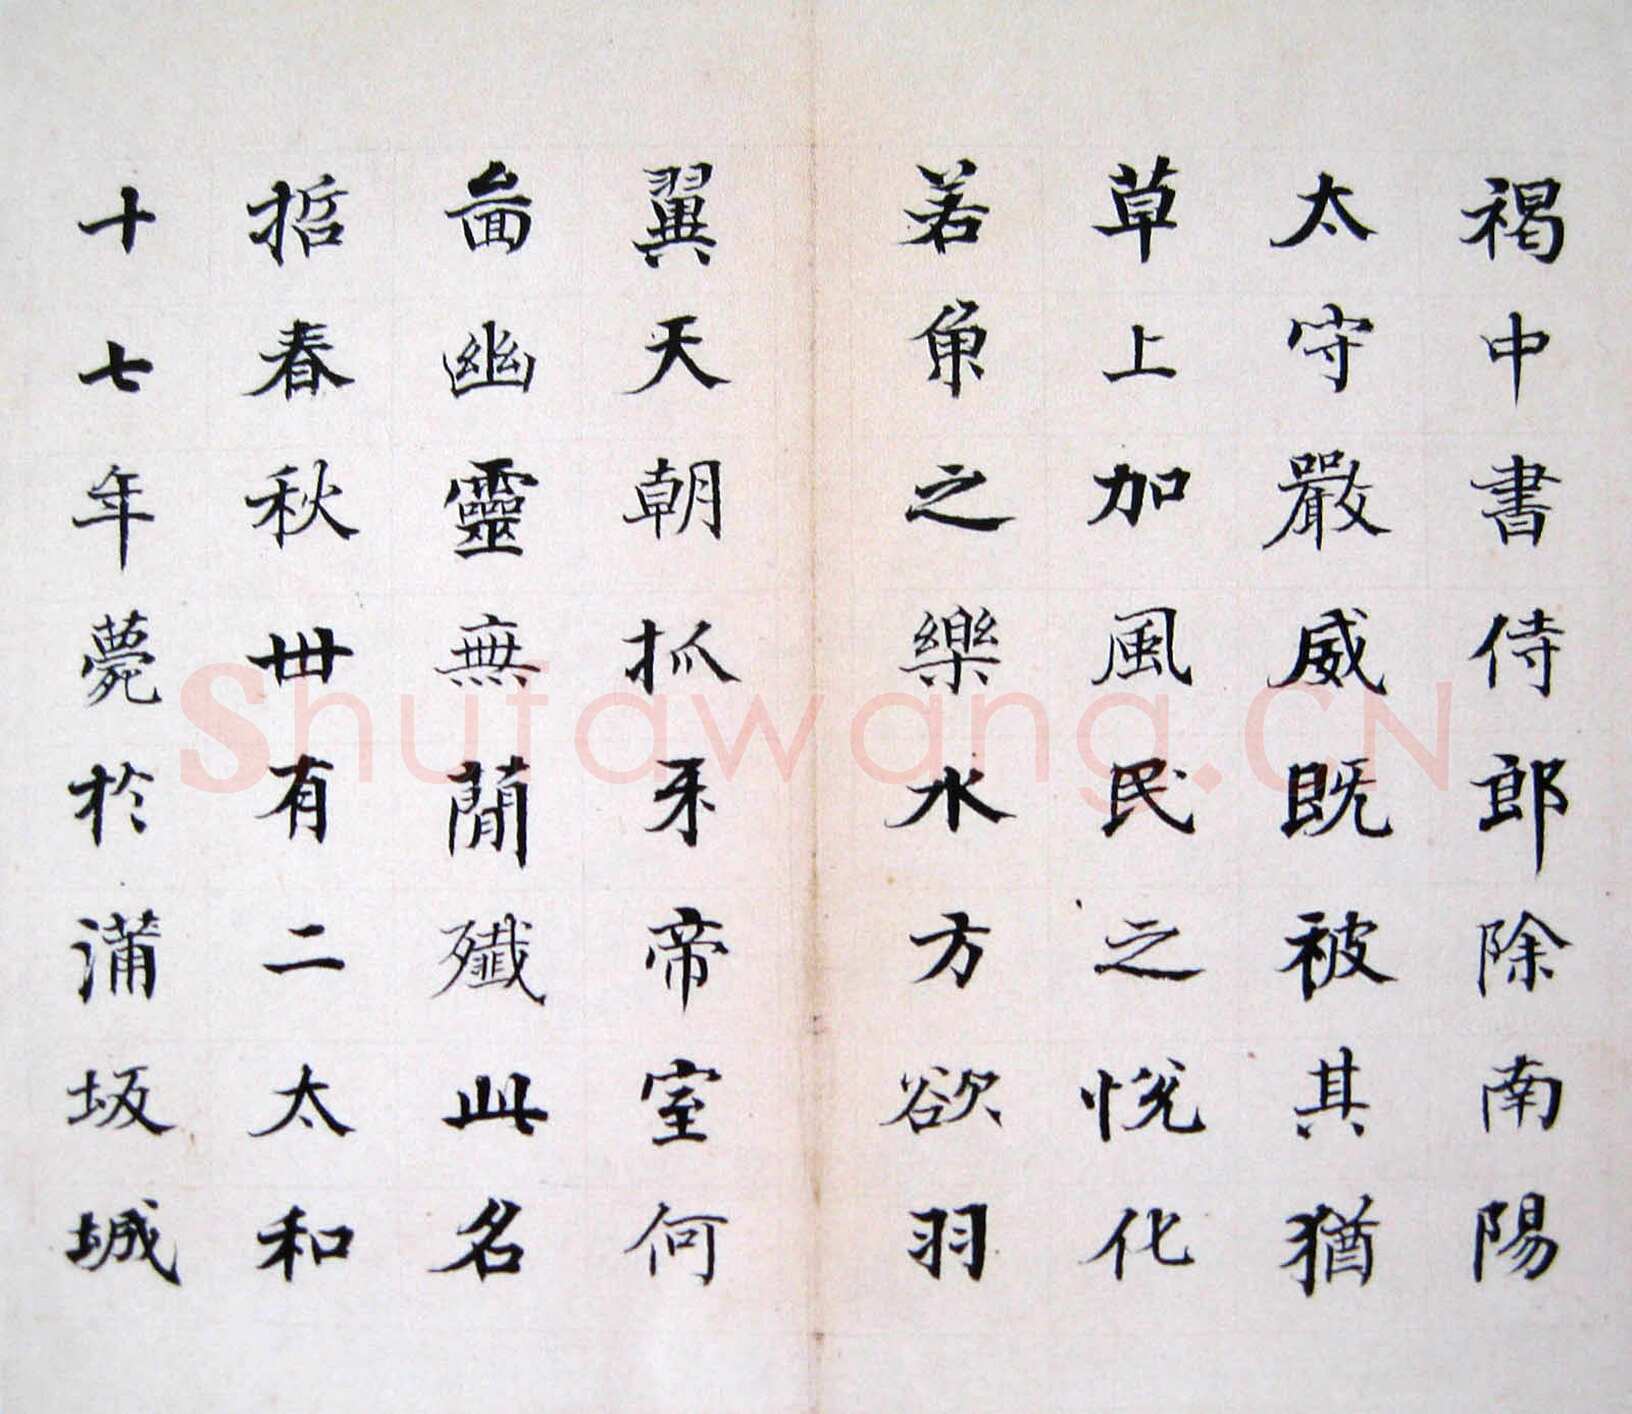 褐中書侍郎除南陽
太守嚴威既被其猶
草上加風民之悅化
若魚之樂水方欲羽
翼天朝抓牙帝室何
啚幽靈無蕳殲此名
哲春秋卅有二太和
十七年薨於蒲坂城
Shufawang.CN